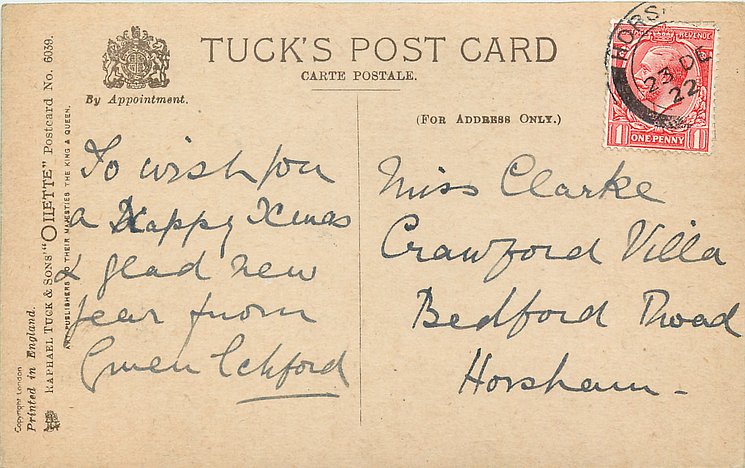 TUCK'S POST CARD
CARTE POSTALE.
By Appointment.
(FOR ADDRESS ONLY.)
To wish you
a Happy Xmas
& glad new
year from
Gwen Ickford
Miss Clarke
Crawford Villa
Bedford Road
Horsham -
REVENUE
ONE PENNY
1 1
HORS
23 DE
22
RAPHAEL TUCK & SONS' "OILETTE" Postcard No. 6039.
ART PUBLISHERS TO THEIR MAJESTIES THE KING & QUEEN.
Copyright London
Printed in England.